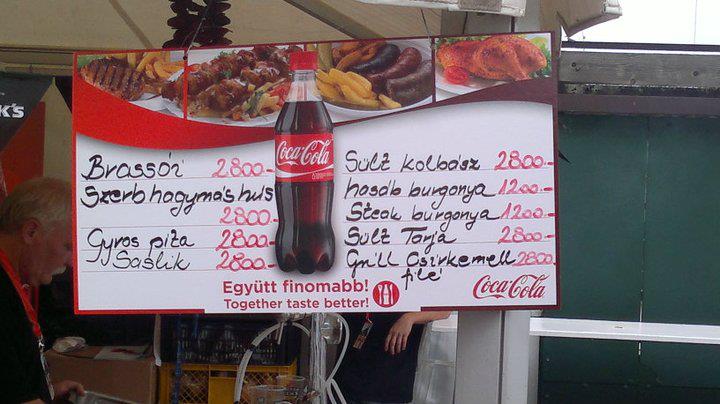 K's
Brassói 2800.-
Szerb hagymás hús
2800.-
Gyros pita 2800.-
Saslik 2800.-
Coca-Cola
Sült kolbász 2800.-
hasáb burgonya 1200.-
Steak burgonya 1200.-
Sült Tarja 2800.-
Grill Csirkemell 2800.-
filé
Együtt finomabb!
Together taste better!
Coca-Cola